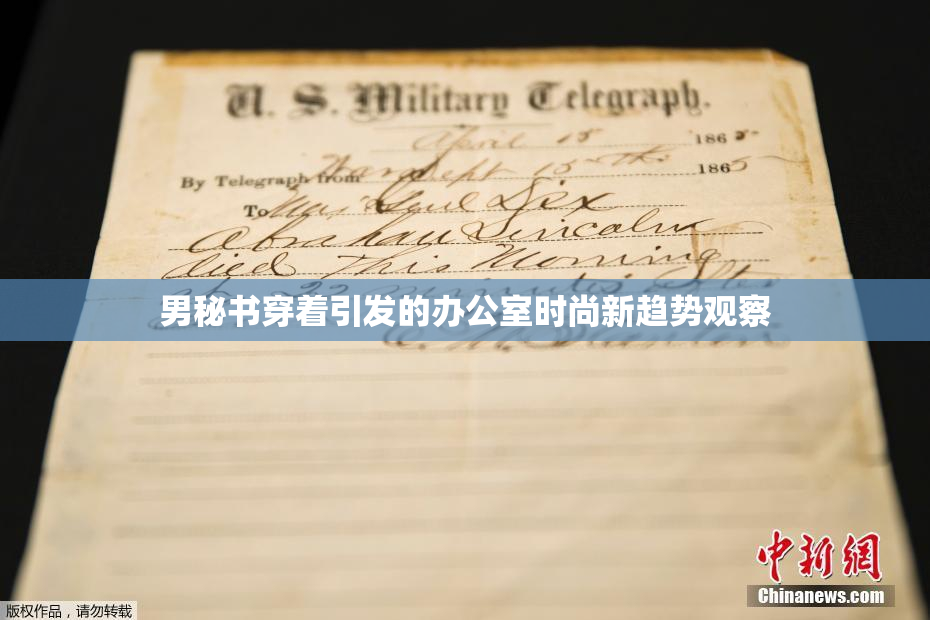 U. S. Military Telegraph.
April 15 1865
By Telegraph from War Dept 15th 1865
To Maj Genl Dix
Abraham Lincoln
died This Morning
at 22 minutes after
男秘书穿着引发的办公室时尚新趋势观察
中新网
Chinanews.com
版权作品，请勿转载